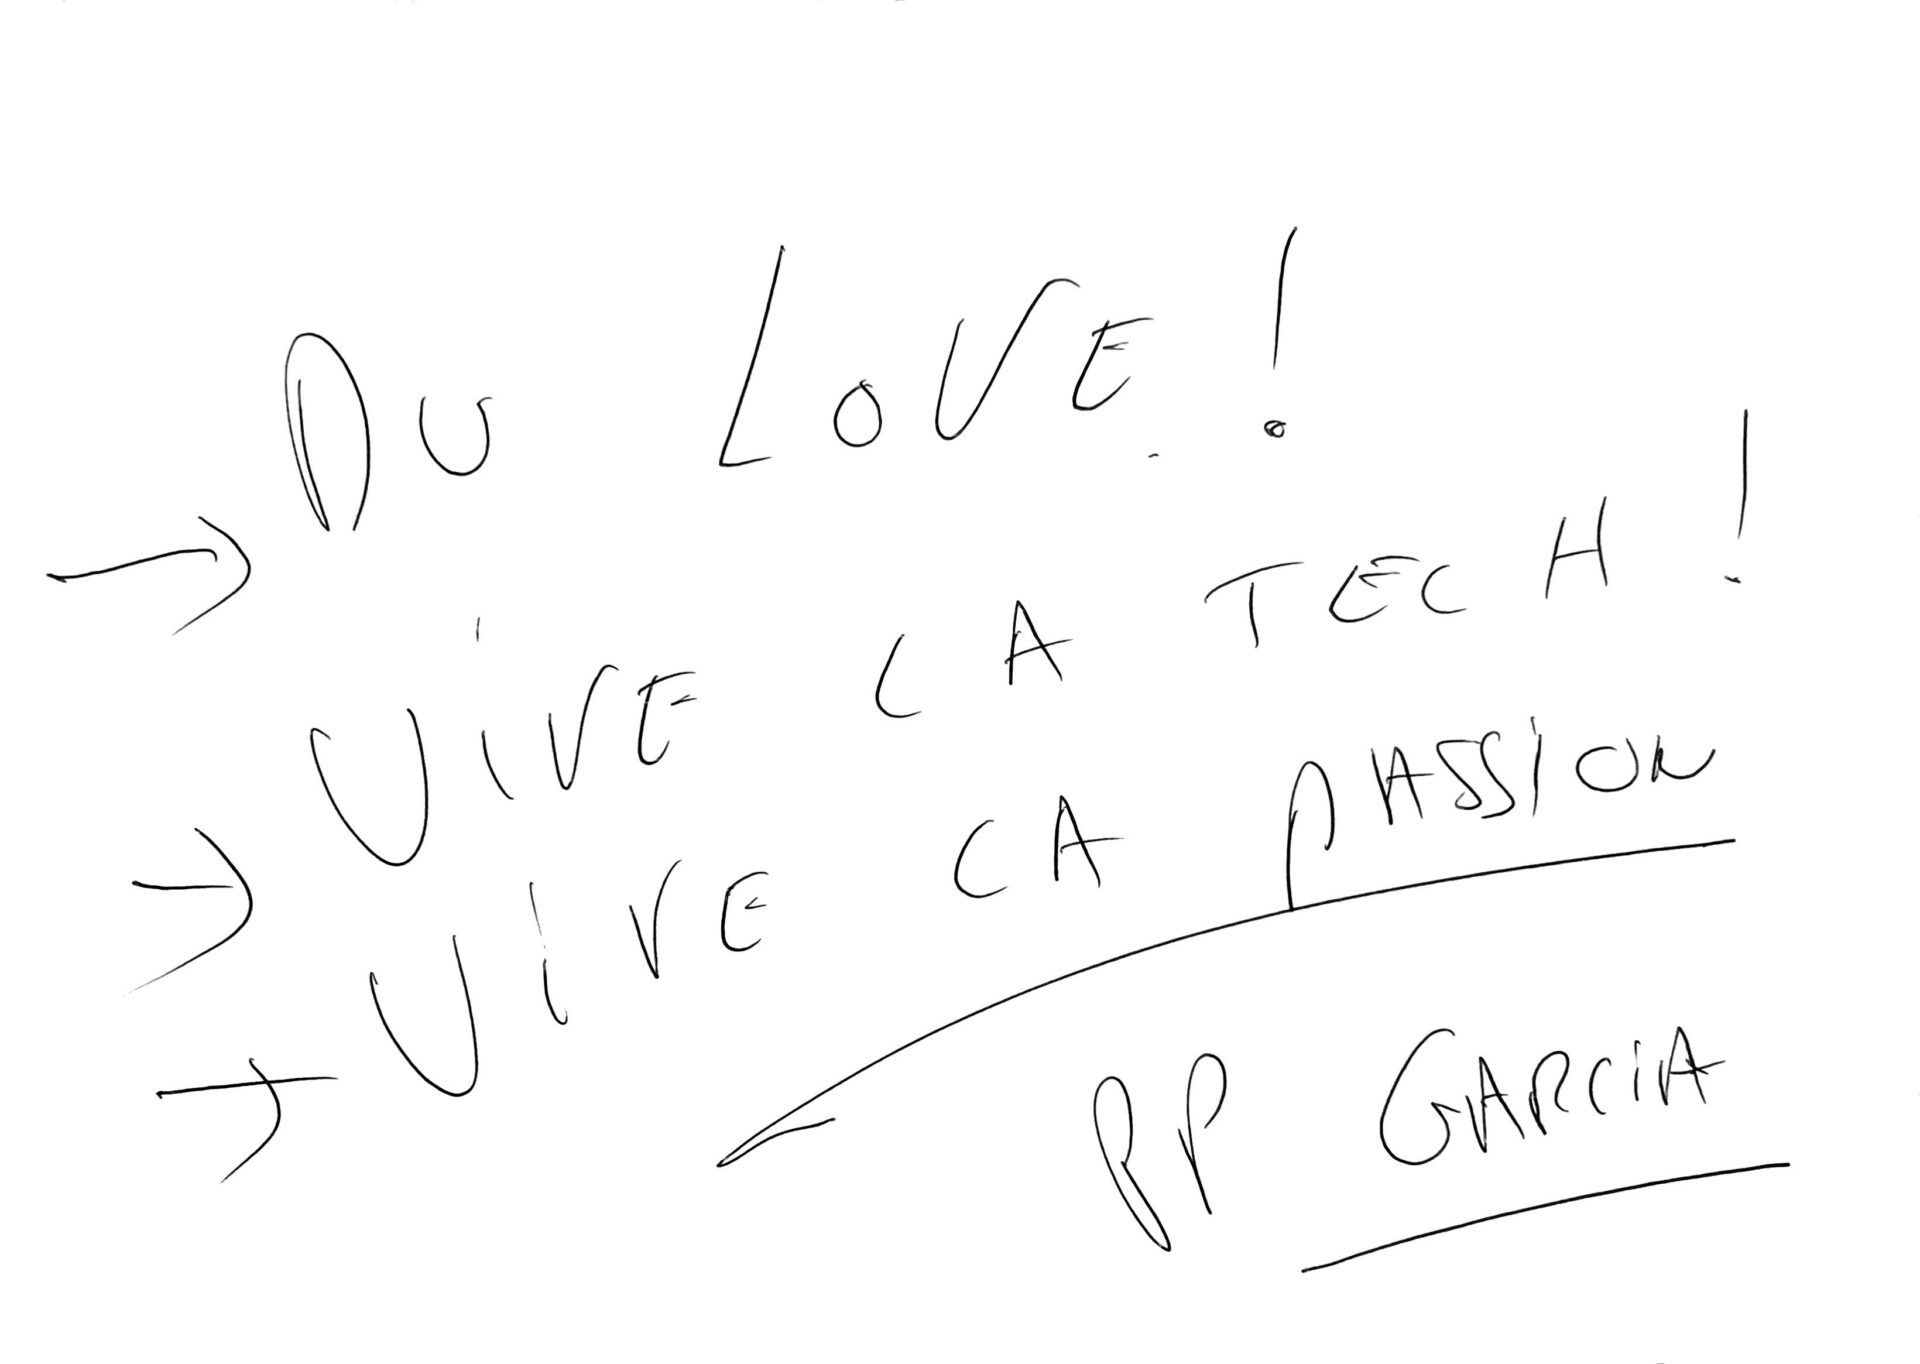 → DU LOVE !
→ VIVE LA TECH !
→ VIVE LA PASSION
PP GARCIA